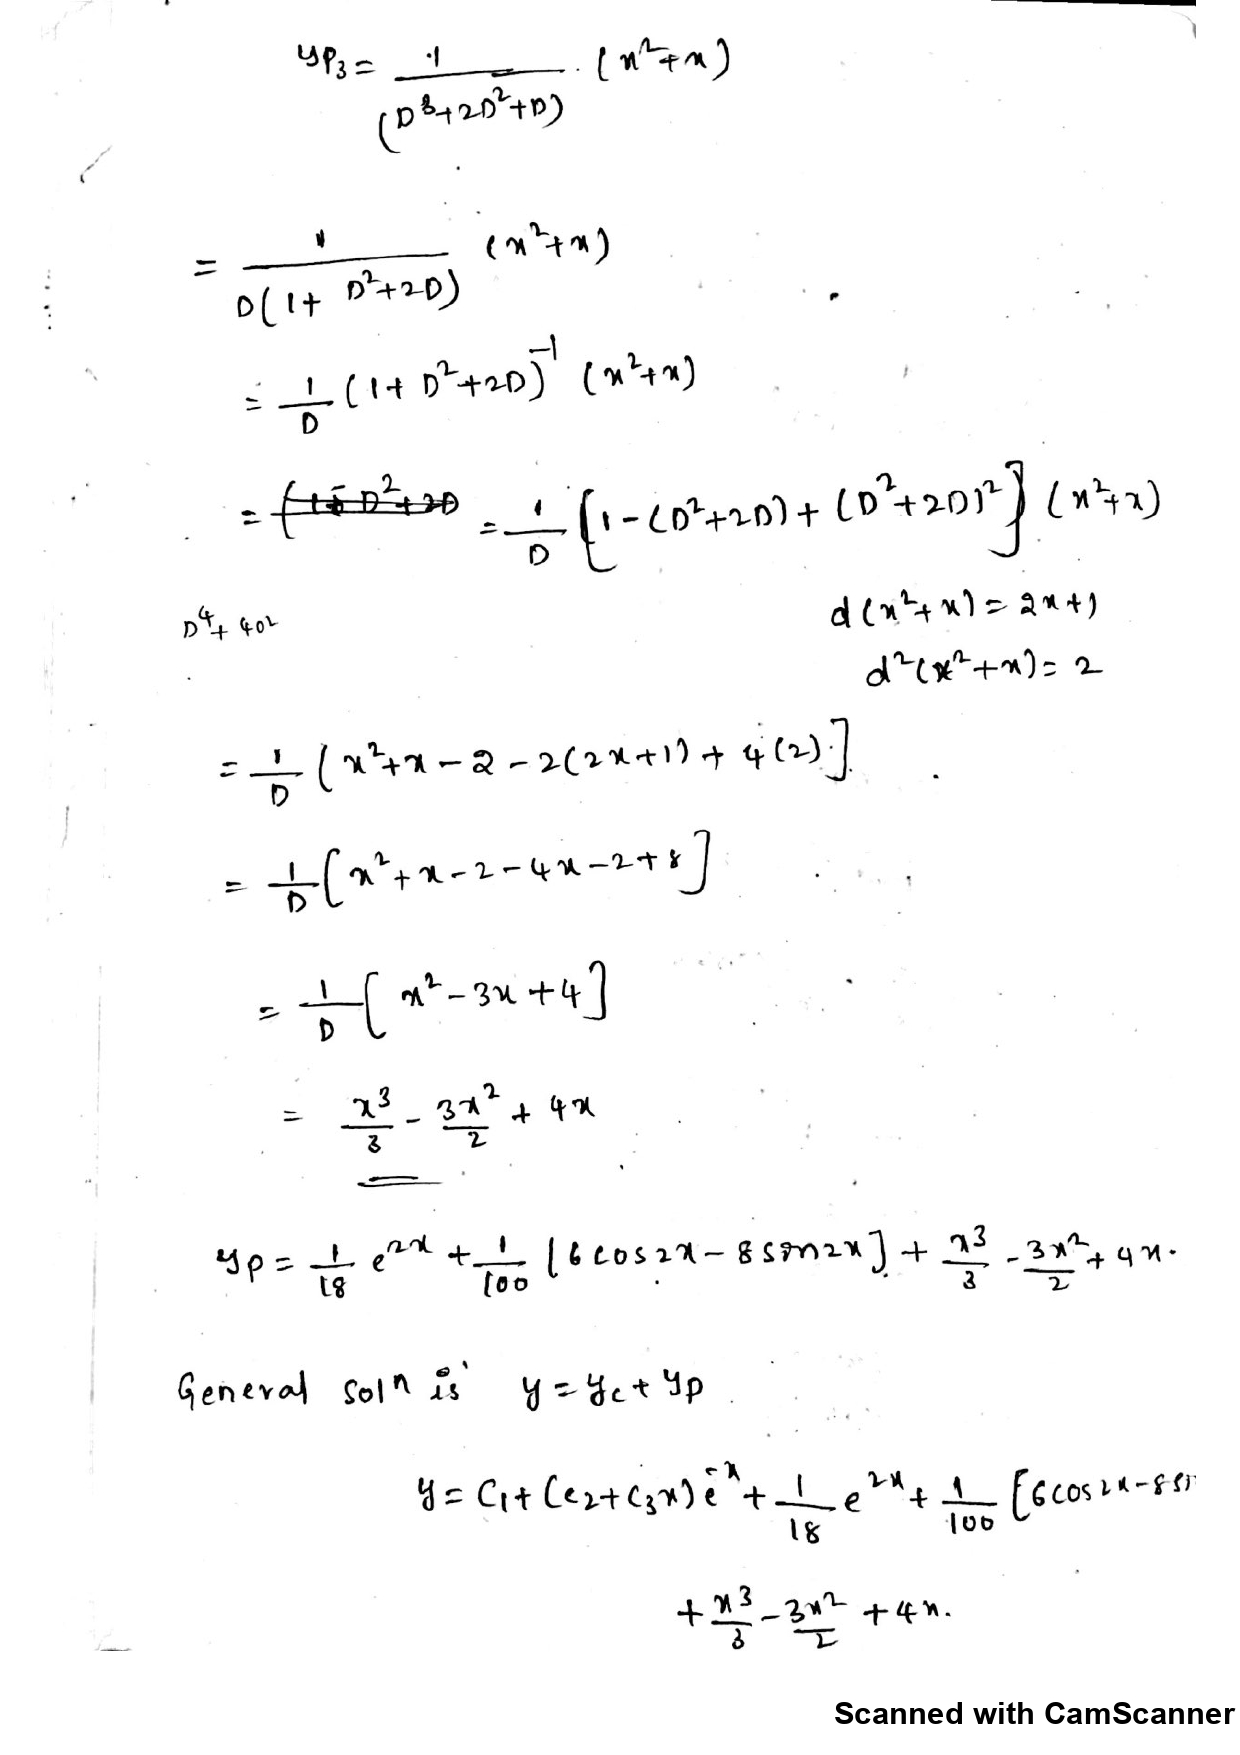 yp₃ = 1/(D³+2D²+D) · (x²+x)
= 1/D(1+ D²+2D) (x²+x)
= 1/D (1+ D²+2D)⁻¹ (x²+x)
= (1+ D²+2D = 1/D [1-(D²+2D)+(D²+2D)²] (x²+x)
d(x²+x) = 2x+1
D⁴+ 4D²
d²(x²+x) = 2
= 1/D (x²+x-2-2(2x+1)+4(2)]
= 1/D [x²+x-2-4x-2+8]
= 1/D [x²-3x+4]
= x³/3 - 3x²/2 + 4x
yp = 1/18 e²ˣ + 1/100 [6cos2x-8sin2x] + x³/3 - 3x²/2 + 4x.
General solⁿ is y = yc+yp
y = C₁+(C₂+C₃x)e⁻ˣ + 1/18 e²ˣ + 1/100 [6cos2x-8si
+ x³/3 - 3x²/2 + 4x.
Scanned with CamScanner